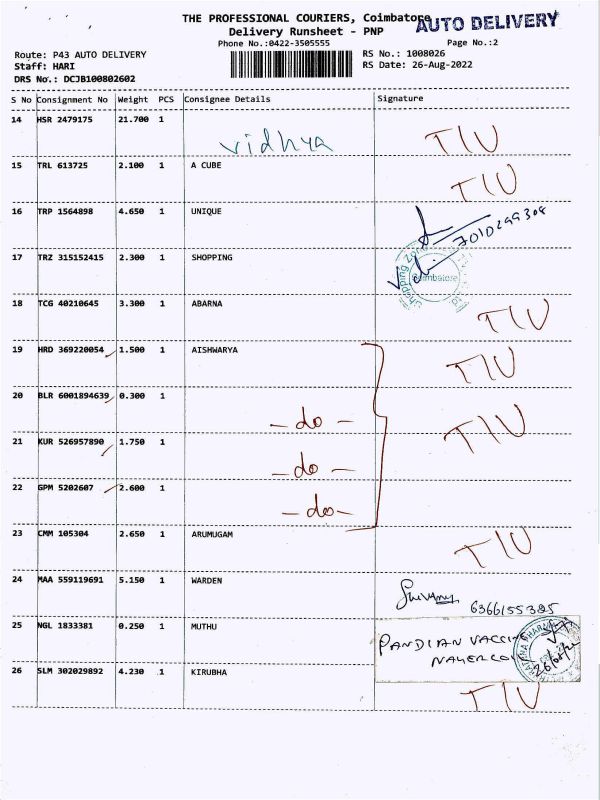 THE PROFESSIONAL COURIERS, Coimbatore
AUTO DELIVERY
Delivery Runsheet - PNP
Phone No.:0422-3505555
Page No.:2
Route: P43 AUTO DELIVERY
RS No.: 1008026
Staff: HARI
RS Date: 26-Aug-2022
DRS No.: DCJB100802602
S No Consignment No Weight PCS Consignee Details Signature
14 HSR 2479175 21.700 1 vidhya TIU
15 TRL 613725 2.100 1 A CUBE TIU
16 TRP 1564898 4.650 1 UNIQUE
7010299308
17 TRZ 315152415 2.300 1 SHOPPING
Shopping Zone
Coimbatore
18 TCG 40210645 3.300 1 ABARNA TIU
19 HRD 369220054 1.500 1 AISHWARYA TIU
20 BLR 6001894639 0.300 1 -do- TIU
21 KUR 526957890 1.750 1 -do-
22 GPM 5202607 2.600 1 -do-
23 CMM 105304 2.650 1 ARUMUGAM TIU
24 MAA 559119691 5.150 1 WARDEN
6366155385
25 NGL 1833381 0.250 1 MUTHU PANDIAN
26 SLM 302029892 4.230 1 KIRUBHA TIU